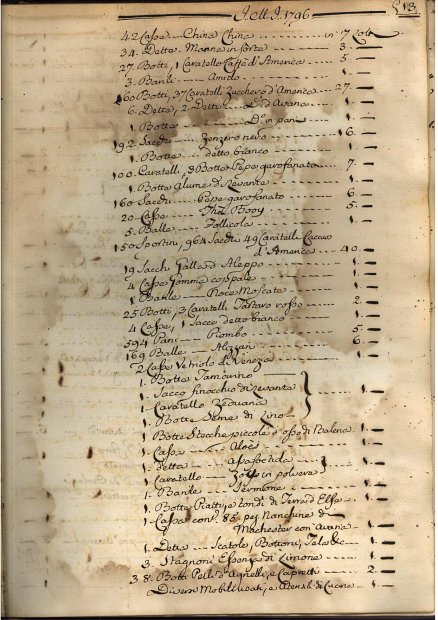 I. Ett. I. 1796 513
42 Casse — China China in 7 Lotti
34. Dette Manna in sorte 3. —
27. Botti, 1 Caratello Caffé d'America 5 —
3. Barili Amido 1. —
60 Botti, 37 Caratelli Zucchero d'America 27 —
6. Dette, 2 Detti d'Avana 1. —
1. Botte D.º in pani 1. —
192 Sacchi Zenzero nero 16 —
1. Botte detto bianco 1. —
100 Caratelli, 2 Botte Pepe garofanato 7. —
1. Botte Alume di Levante 1. —
160 Sacchi Pepe garofanato 6 —
20 Casse Thé Booy 5 —
5. Balle Follicola 1. —
150 Sportini, 964 Sacchi 49 Caratelli Caccao
d'America 40 —
19 Sacchi Galla d'Aleppo 1. —
4 Casse Gomma coppale 1. —
1. Barile Noce Moscate 1. —
25 Botti, 3 Caratelli Tartaro rosso 2. —
4 Casse, 1 Sacco detto bianco 1. —
594 Pani Piombo 5. —
169 Balle Alizzari 6. —
2 Casse Vetriolo di Venezia 1. —
1. Botte Tamarino
1. Sacco finocchio di Levante
1. Caratello Zeduaria 1. —
1. Botte Seme di Lino
1. Botte Stecche piccole o osso di Balena 1. —
1. Cassa Aloé 1. —
1. detta Assafoetida
1. Caratello Zolfo in polvere 1. —
1. Barile 1. —
1. Botte Piatti, e tondi di Terra d'Elsa 1. —
1. Cassa con f. 85 pez. Nanchine di
Machester con Avaria 1. —
1. Detta Scatole, Bottoni, Tela &c 1. —
3. Stagnoni Essenza di Limone 1. —
3. 8. Botti Pelli d'Agnelli, e Capretti 2. —
Diversi Mobili usati, e Utensili di Cucina 1 —